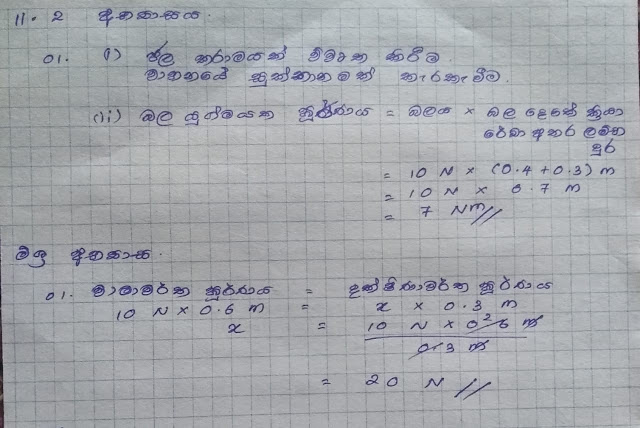 11.2 අභ්‍යාසය.
01. (i) ජල කරාමයක් විවෘත කිරීම.
වාහනයේ සුක්කානමක් කැරකැවීම.
(ii) බල යුග්මයක ඝූර්ණය = බලය × බල දෙකේ ක්‍රියා
රේඛා අතර ලම්බ
දුර
= 10 N × (0.4 + 0.3) m
= 10 N × 0.7 m
= 7 Nm //
මිශ්‍ර අභ්‍යාස.
01. වාමාවර්ත ඝූර්ණය = දක්ෂිණාවර්ත ඝූර්ණය
10 N × 0.6 m = x × 0.3 m
x = 10 N × 0.6 m 2
0.3 m
= 20 N //